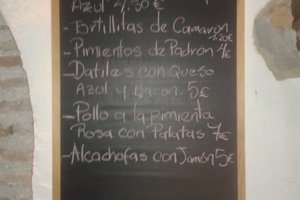 Azul 4.50€
- Tortillitas de Camaron
4.20€
- Pimientos de Padron 4€
- Datiles con Queso
Azul y Bacon. 5€
- Pollo a la Pimienta
Rosa con Patatas 7€
- Alcachofas con Jamón 5€